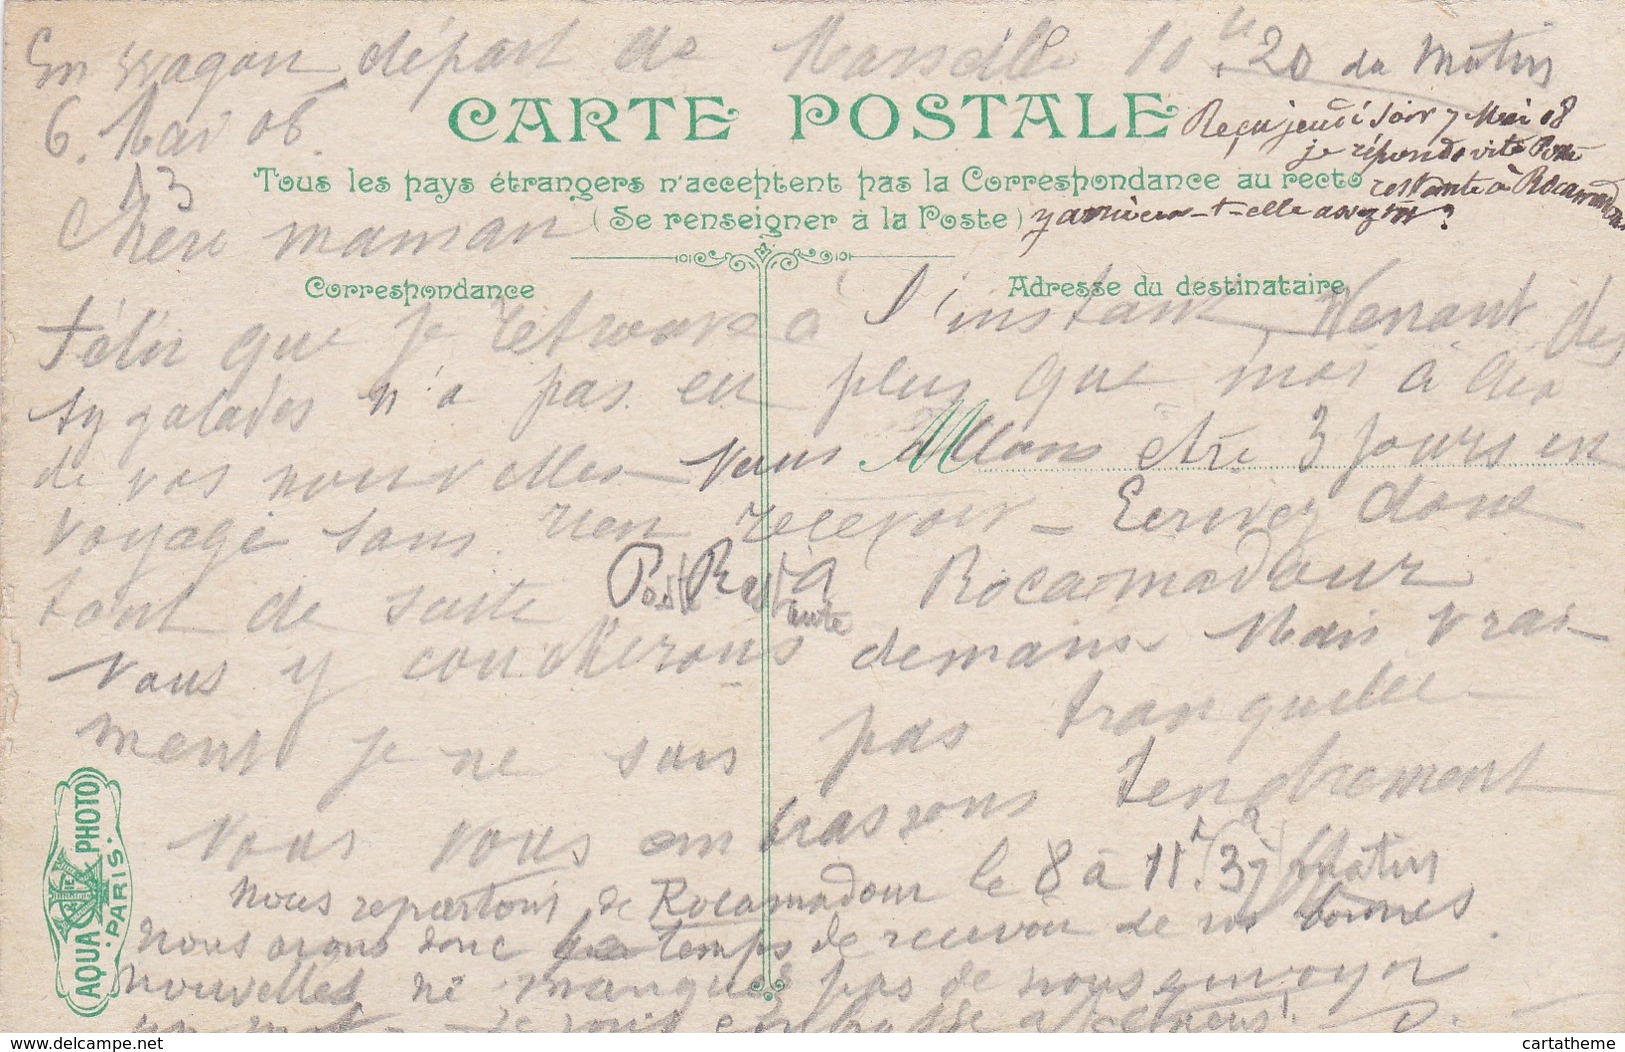 En wagon départ de Marseille 10h.20 du Matin
6. Mai 08.
CARTE POSTALE
Reçu jeudi soir 7 Mai 08
je réponds vite Poste
restante à Rocamadour
y arrivera-t-elle assez tôt?
Tous les pays étrangers n'acceptent pas la Correspondance au recto
(Se renseigner à la Poste)
13
Chère maman
Correspondance
Adresse du destinataire
Félix que je retrouve à l'instant venant des
Aygalades n'a pas eu plus que moi
de vos nouvelles Nous allons être 3 jours en
voyage sans rien recevoir - Ecrivez donc
tout de suite Poste Restante à Rocamadour
Nous y coucherons demain Mais vrai-
ment je ne suis pas tranquille -
Nous vous embrassons tendrement
nous repartons de Rocamadour le 8 à 11h.37 Matin
nous avons donc le temps de recevoir de vos bonnes
nouvelles ne manquez pas de nous envoyer
un mot - Je vous embrasse
AQUA PHOTO
PARIS
delcampe.net
cartatheme